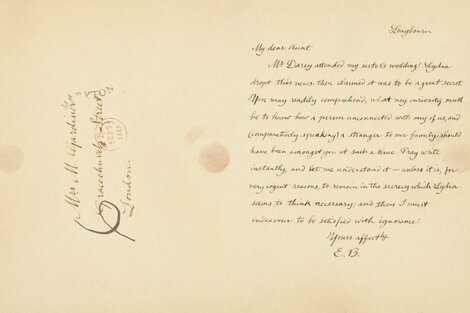 Mrs M. Gardiner
Gracechurch Street
London
Longbourn
My dear Aunt,
Mr Darcy attended my sister's wedding! Lydia
dropt this news, then claimed it was to be a great secret.
You may readily comprehend, what my curiosity must
be to know how a person unconnected with any of us, and
(comparatively speaking) a stranger to our family, should
have been amongst you at such a time. Pray write
instantly, and let me understand it – unless it is, for
very cogent reasons, to remain in the secrecy which Lydia
seems to think necessary; and then I must
endeavour to be satisfied with ignorance!
Yours affectly
E. B.